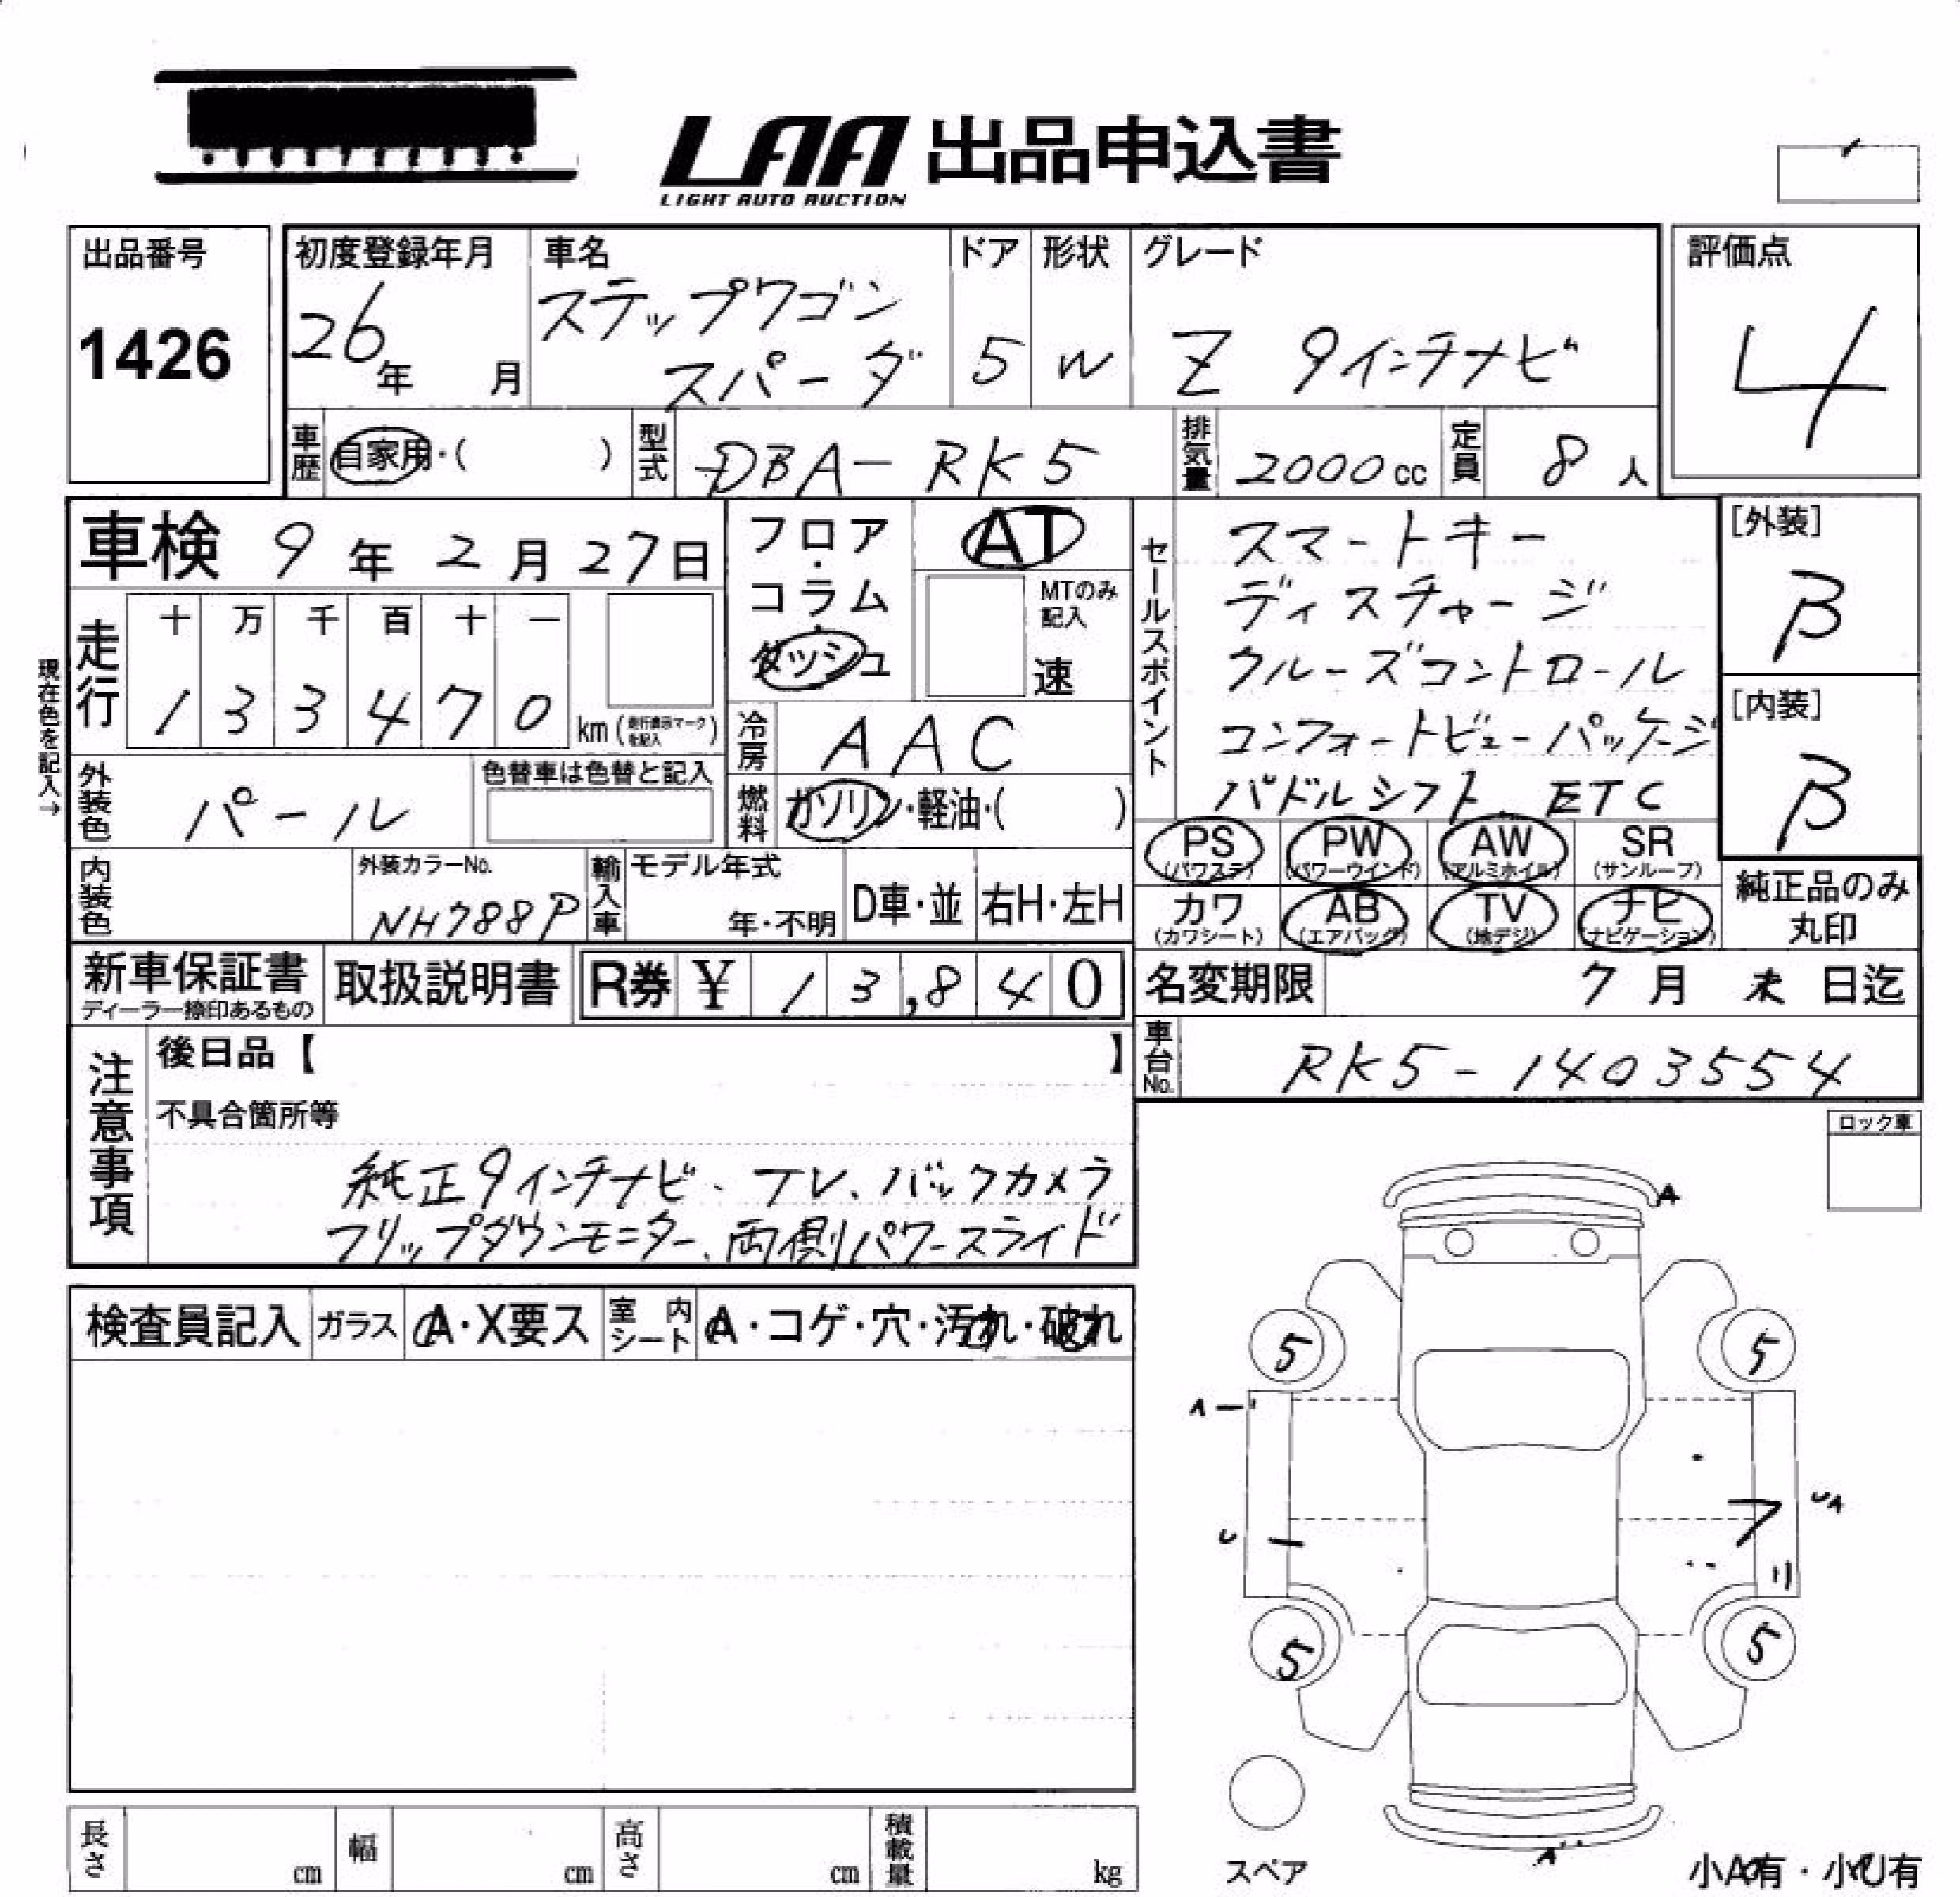 LAA 出品申込書
LIGHT AUTO AUCTION
出品番号
1426
初度登録年月
26年 月
車名
ステップワゴン
スパーダ
ドア
5
形状
W
グレード
Z 9インチナビ
評価点
4
車歴 自家用・( )
型式 DBA-RK5
排気量 2000cc
定員 8人
車検 9年2月27日
現在色を記入→
走行
十 万 千 百 十 一
1 3 3 4 7 0 km (走行表示マークを記入)
フロア・コラム・ダッシュ
AT
MTのみ記入
速
冷房 AAC
燃料 ガソリン・軽油・( )
セールスポイント
スマートキー
ディスチャージ
クルーズコントロール
コンフォートビューパッケージ
パドルシフト. ETC
[外装]
B
[内装]
B
外装色 パール
色替車は色替と記入
内装色
外装カラーNo.
NH788P
輸入車
モデル年式
年・不明
D車・並
右H・左H
PS (パワステ)
PW (パワーウインド)
AW (アルミホイル)
SR (サンルーフ)
カワ (カワシート)
AB (エアバッグ)
TV (地デジ)
ナビ (ナビゲーション)
純正品のみ
丸印
新車保証書
ディーラー捺印あるもの
取扱説明書
R券 ¥ 13,840
名変期限 7月 末 日迄
車台No. RK5-1403554
注意事項
後日品【 】
不具合箇所等
純正9インチナビ、TV、バックカメラ
フリップダウンモニター、両側パワースライド
ロック車
検査員記入
ガラス A・X要ス
室内シート A・コゲ・穴・汚れ・破れ
A
5 5
A
UA
U
5 5
スペア
A
小A有・小U有
長さ cm
幅 cm
高さ cm
積載量 kg